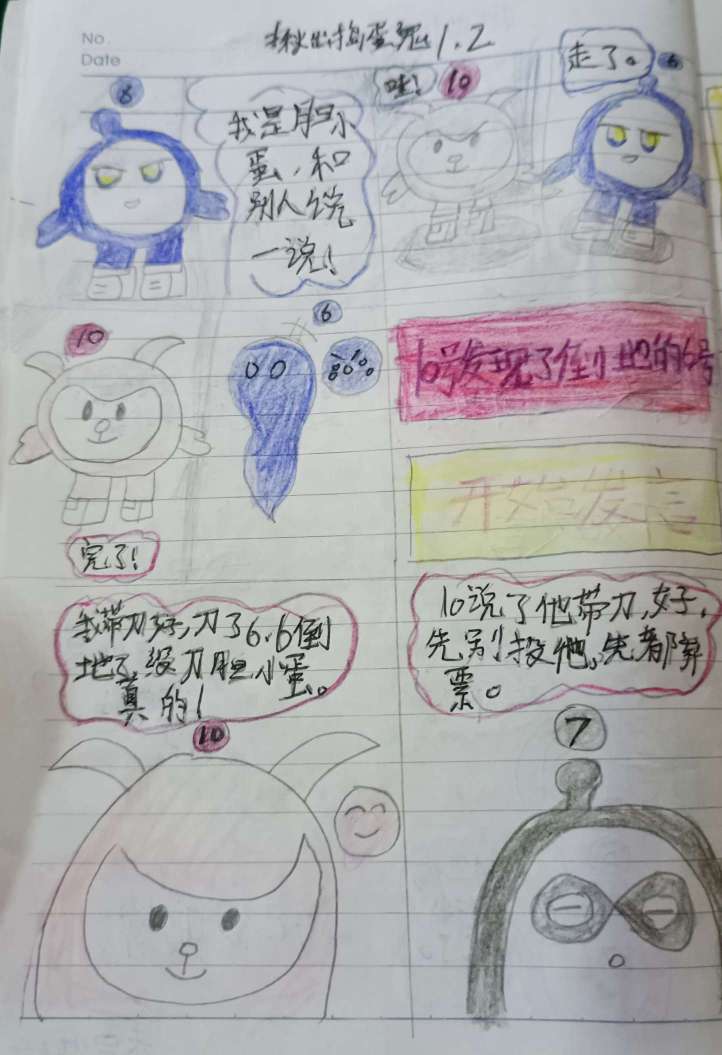 No.
Date
揪出捣蛋鬼1.2
8
我是胆小
蛋,和
别人
一说!
哇!
10
走了。
6
10
6
10号发现了倒地的6号
完了!
开始发言
我带刀好,刀了6.6倒
地了,没刀胆小蛋。
真的!
10
10说了他带刀,好,
先别投他。先都弃
票。
7